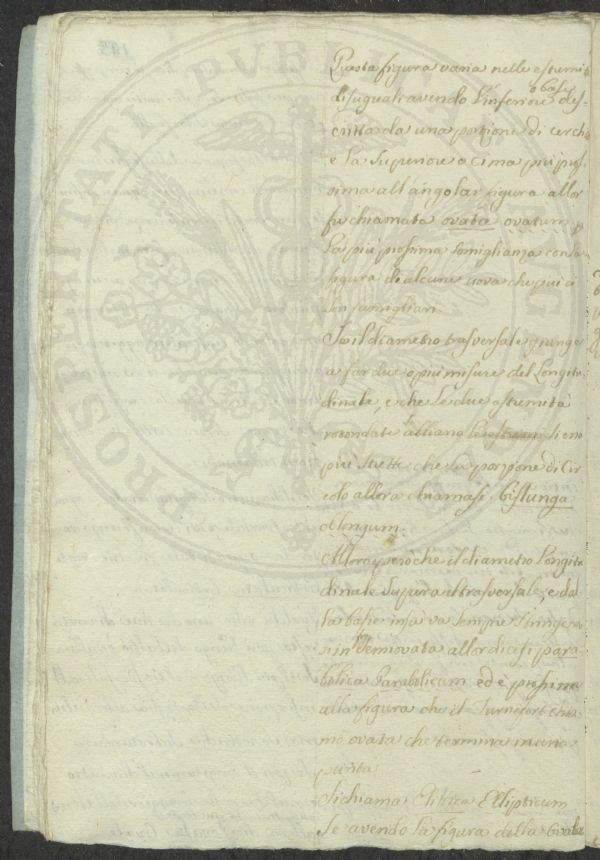 Questa figura varia nelle estremi
o base
disuguali avendo l'inferiore des-
critta da una porzione di cerchi
e la superiore o cima piu pros-
sima all'angolo: figura allor
fu chiamata ovata ovatum p
la più prossima somiglianza con la
figura di alcune uova che piu a
son famigliari
Se il diametro trasversale giunge
a far due o più misure del Longitu
dinale, e che le due estremità
rotondate abbiano sieno
più strette che la porzione di Cir
colo allora chiamasi bislunga
oblongum.
Allora però che il diametro Longitu
dinale supera il trasversale, e dal
la base in su va sempre stringendo
si in semiovata allor dicesi para-
bolica Parabolicum ed è prossima
alla figura che il Turnefort chia
mò ovata che termina in una
punta
Si chiama Elitica Ellipticum
se avendo la figura della Ovata
PROSPERITATI PVBLICAE AVG